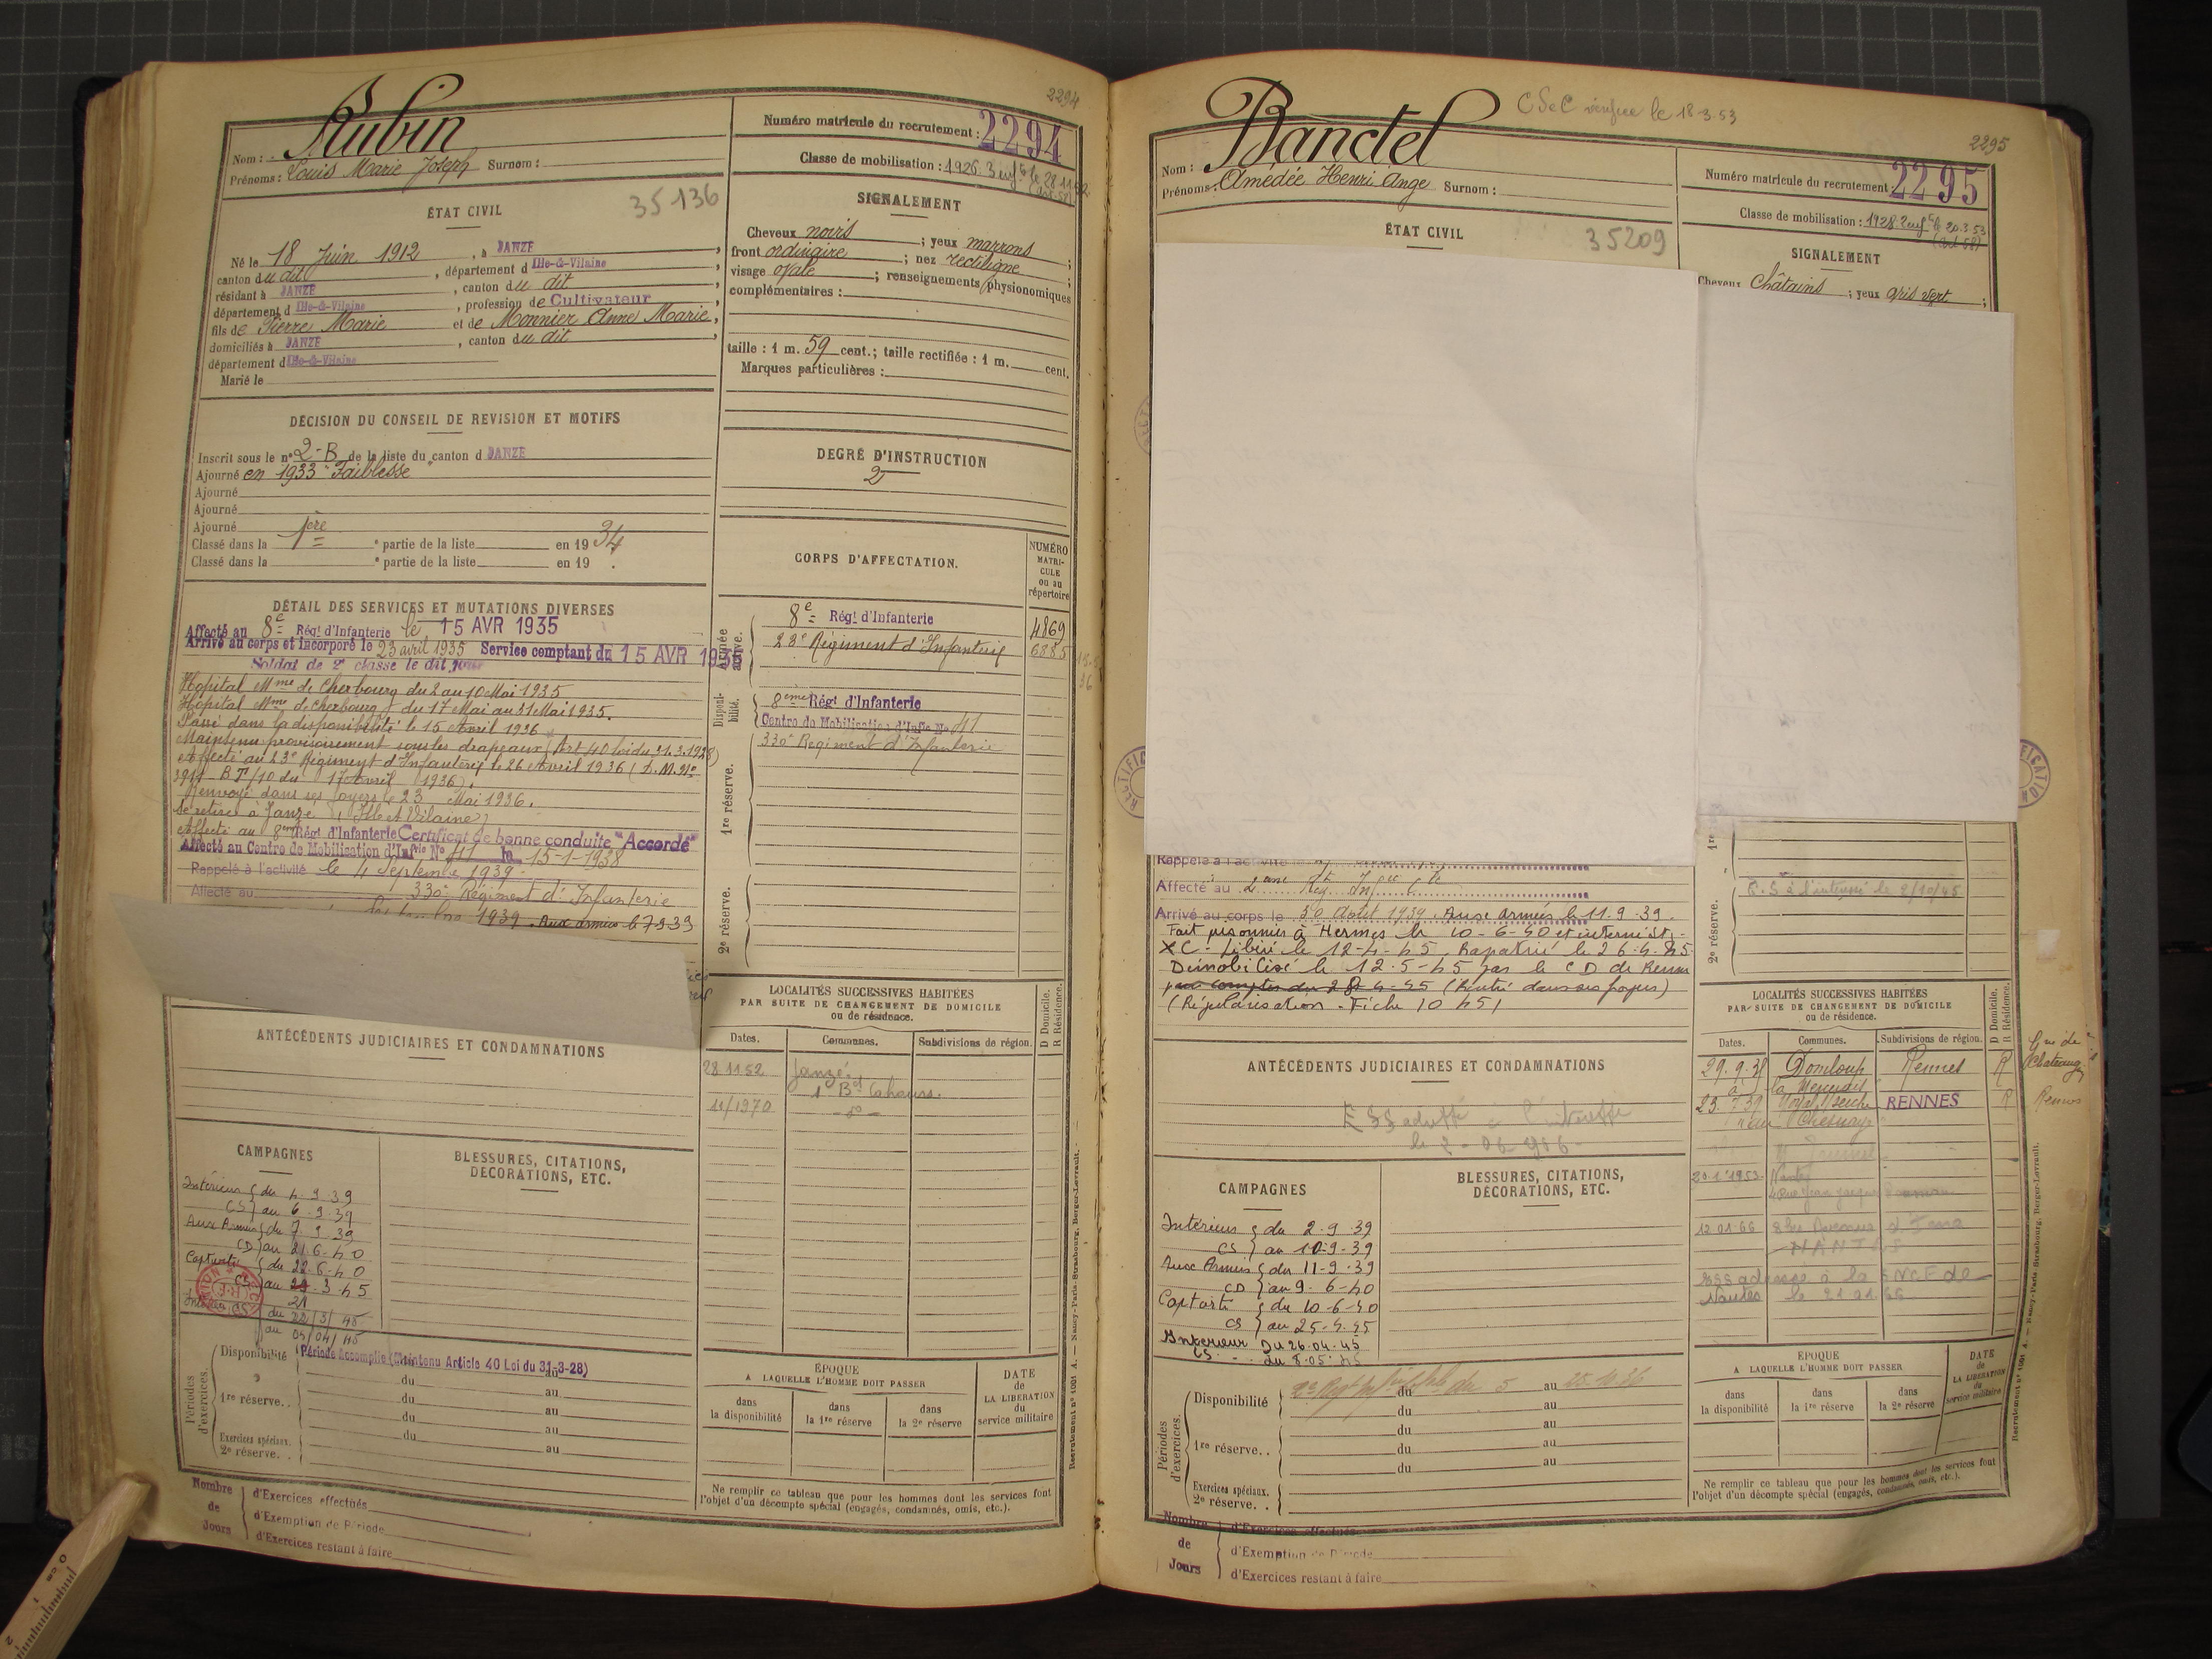 2294
Rubin
Nom :
Prénoms : Louis Marie Joseph Surnom :
Numéro matricule du recrutement : 2294
Classe de mobilisation : 1926
35136
ÉTAT CIVIL
Né le 18 Juin 1912, à JANZÉ
canton du dit, département d Ille-&-Vilaine
résidant à JANZÉ, canton du dit
département d Ille-&-Vilaine, profession de Cultivateur
fils de Pierre Marie et de Monnier Anne Marie,
domiciliés à JANZÉ, canton du dit
département d Ille-&-Vilaine
Marié le
SIGNALEMENT
Cheveux noirs ; yeux marrons
front ordinaire ; nez rectiligne ;
visage ovale ; renseignements physionomiques
complémentaires :
taille : 1 m. 59 cent.; taille rectifiée : 1 m. cent.
Marques particulières :
DÉCISION DU CONSEIL DE REVISION ET MOTIFS
Inscrit sous le n° 2-B de la liste du canton d JANZÉ
Ajourné en 1933 "Faiblesse"
Ajourné
Ajourné
Ajourné
Classé dans la 1ère partie de la liste en 1934
Classé dans la e partie de la liste en 19 .
DEGRÉ D'INSTRUCTION
2
DÉTAIL DES SERVICES ET MUTATIONS DIVERSES
Affecté au 8e Régt d'Infanterie le 15 AVR 1935
Arrivé au corps et incorporé le 23 avril 1935 Service comptant du 15 AVR 1935
Soldat de 2e classe le dit jour
Hopital Mme de Cherbourg du 2 au 10 Mai 1935
Hopital Mme de Cherbourg du 17 Mai au 31 Mai 1935.
Passé dans la disponibilité le 15 Avril 1936
Maintenu provisoirement sous les drapeaux (Art 40 loi du 31.3.1928)
Affecté au 23e Régiment d'Infanterie le 26 Avril 1936 (D.M. No
BT/10 du 17 Avril 1936).
Renvoyé dans ses foyers le 23 Mai 1936.
Se retire à Janzé, (Ille et Vilaine)
Affecté au 8eme Régt d'Infanterie Certificat de bonne conduite "Accordé"
Affecté au Centre de Mobilisation d'Infrie No 41 le 15-1-1938
Rappelé à l'activité le 4 Septembre 1939
Affecté au 330e Régiment d'Infanterie
1939. Aux armées le 7-9-39
CORPS D'AFFECTATION.
NUMÉRO MATRICULE ou au répertoire
Armée active.
8e Régt d'Infanterie 4869
23e Régiment d'Infanterie 6885
Disponibilité.
8eme Régt d'Infanterie
Centre de Mobilisation d'Infie No 41
1re réserve.
330e Regiment d'Infanterie
2e réserve.
LOCALITÉS SUCCESSIVES HABITÉES
PAR SUITE DE CHANGEMENT DE DOMICILE
ou de résidence.
D Domicile. R Résidence.
Dates. Communes. Subdivisions de région.
28 11 52 Janzé.
1 Bd Cahours.
11/1970 - d° -
ANTÉCÉDENTS JUDICIAIRES ET CONDAMNATIONS
CAMPAGNES
Intérieur du 4.9.39
CS au 6.9.39
Aux Armées du 7.9.39
CD au 21.6.40
Captivité du 22.6.40
CS au 3.45
21
Intérieur CS du 22/3/45
au 04/04/45
BLESSURES, CITATIONS,
DÉCORATIONS, ETC.
Périodes d'exercices.
Disponibilité Période Accomplie (Maintenu Article 40 Loi du 31-3-28)
du au
1re réserve. . du au
du au
Exercices spéciaux. du au
2e réserve. . au
ÉPOQUE
A LAQUELLE L'HOMME DOIT PASSER
dans la disponibilité
dans la 1re réserve
dans la 2e réserve
DATE de LA LIBÉRATION du service militaire
Ne remplir ce tableau que pour les hommes dont les services font
l'objet d'un décompte spécial (engagés, condamnés, omis, etc.).
Nombre de Jours
d'Exercices effectués
d'Exemption de Période
d'Exercices restant à faire
Recrutement n° 1001 A. — Nancy-Paris-Strasbourg, Berger-Levrault.
CSeC vérifiée le 18-3-53
2295
Banctel
Nom :
Prénoms : Amédée Henri Ange Surnom :
Numéro matricule du recrutement : 2295
Classe de mobilisation : 1928 2 enf le 20.3.53
(art 58)
ÉTAT CIVIL
35209
SIGNALEMENT
Cheveux Châtains ; yeux gris vert ;
Rappelé à l'activité le
Affecté au
Arrivé au corps le 30 Août 1939. Aux armées le 11.9.39.
Fait prisonnier à Hermes le 10-6-40 et interné St.
XC - Libéré le 12-4-45. Rapatrié le 26.4.45.
Démobilisé le 12-5-45 par le CD de Rennes
pour compter du 28-4-45 (Rentré dans ses foyers)
(Régularisation - Fiche 10 451
1re
2e réserve.
à l'intéressé le 2/10/45
LOCALITÉS SUCCESSIVES HABITÉES
PAR SUITE DE CHANGEMENT DE DOMICILE
ou de résidence.
D Domicile. R Résidence.
Dates. Communes. Subdivisions de région.
29.9.38 Domloup Rennes R
RENNES R Rennes
20.1.1953 Nantes
12.01.66
NANTES
adressé à la SNCF de
Nantes le 21.01.66
ANTÉCÉDENTS JUDICIAIRES ET CONDAMNATIONS
CAMPAGNES
Intérieur du 2-9-39
CS au 10-9-39
Aux Armées du 11-9-39
CD au 9-6-40
Captivité du 10-6-40
CS au 25-4-45
Intérieur Du 26.04.45
CS. au 8.05.45
BLESSURES, CITATIONS,
DÉCORATIONS, ETC.
Périodes d'exercices.
Disponibilité du 5 au 25.4.36
du au
du au
1re réserve. . du au
du au
Exercices spéciaux.
2e réserve. .
ÉPOQUE
A LAQUELLE L'HOMME DOIT PASSER
dans la disponibilité
dans la 1re réserve
dans la 2e réserve
DATE de LA LIBÉRATION du service militaire
Ne remplir ce tableau que pour les hommes dont les services font
l'objet d'un décompte spécial (engagés, condamnés, omis, etc.).
Nombre de Jours
d'Exercices effectués
d'Exemption de Période
d'Exercices restant à faire
Recrutement n° 1001 A. — Nancy-Paris-Strasbourg, Berger-Levrault.